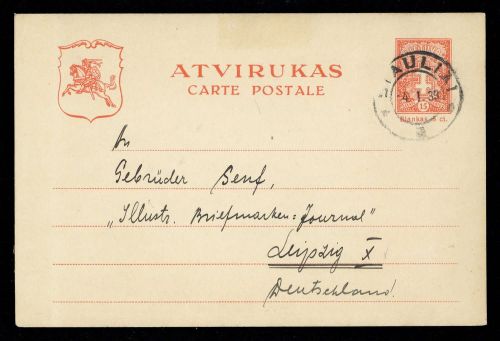 ATVIRUKAS
CARTE POSTALE
ŠIAULIAI
-4. 1. 39
15
Blankas 5 ct.
An
Gebrüder Senf,
„Illustr. Briefmarken=Journal"
Leipzig X
Deutschland.